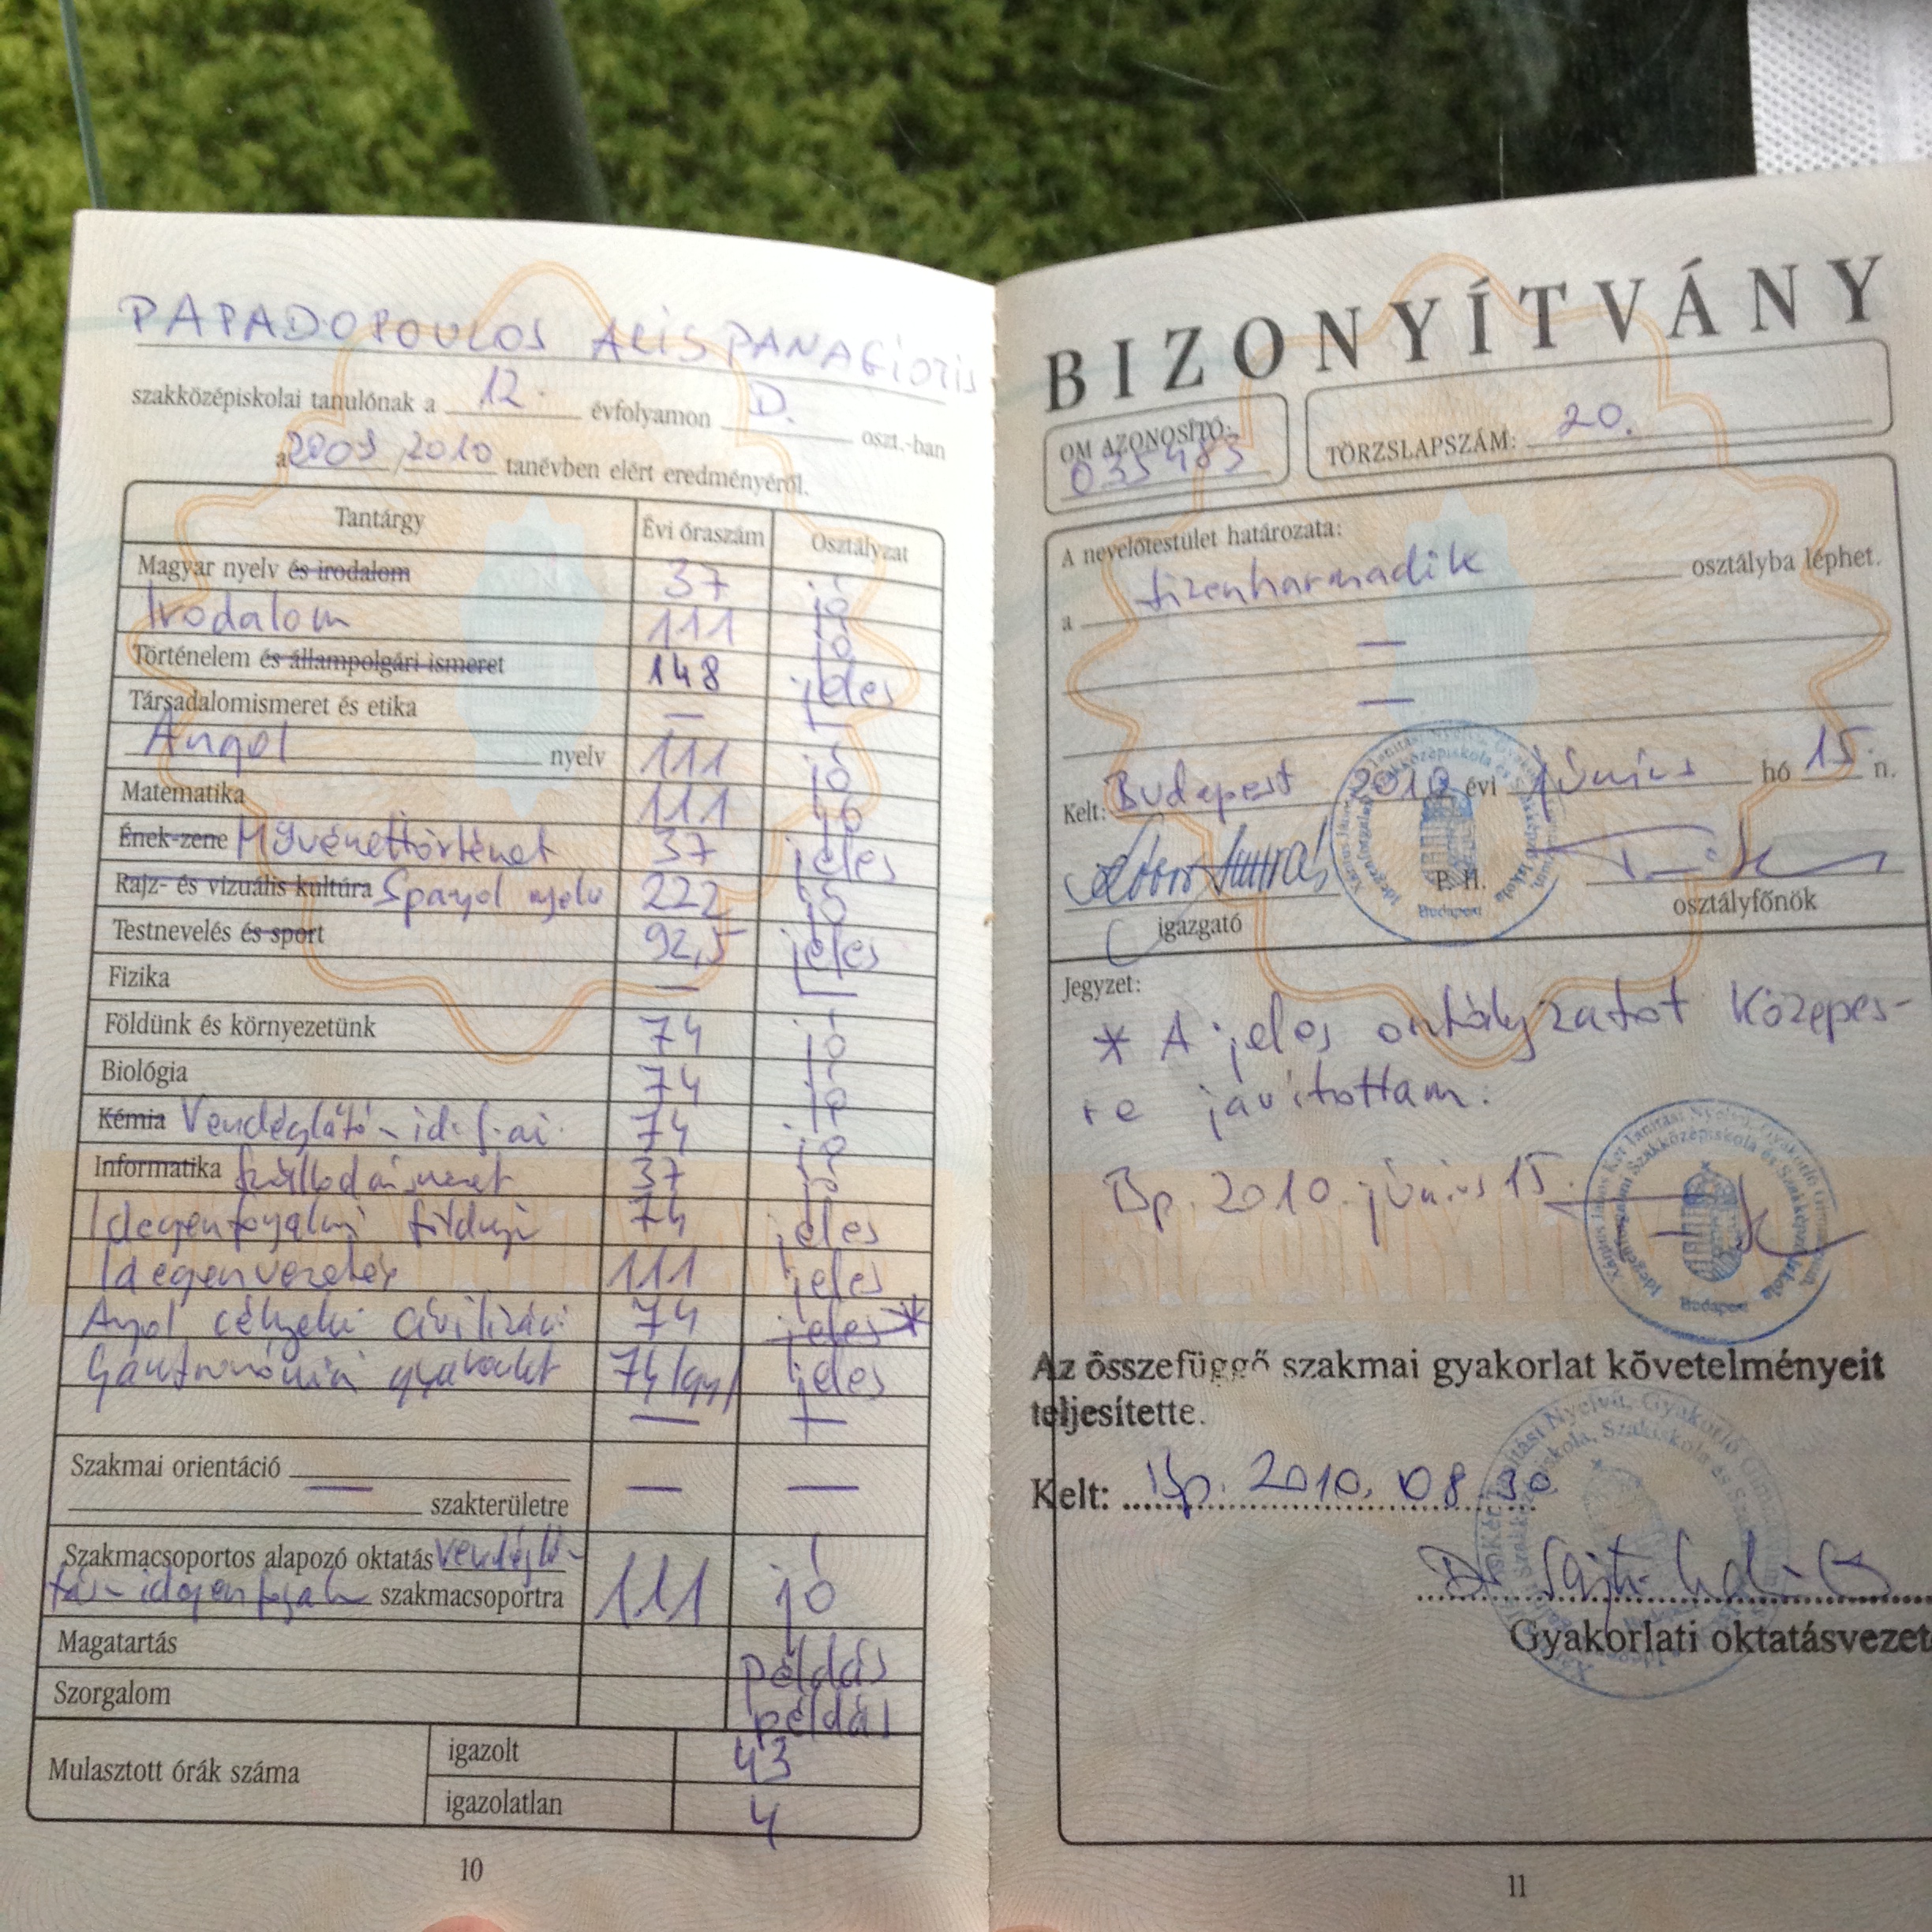 PAPADOPOULOS ALIS PANAGIOTIS
szakközépiskolai tanulónak a 12. évfolyamon D. oszt.-ban
a 2009/2010 tanévben elért eredményéről.
Tantárgy Évi óraszám Osztályzat
Magyar nyelv és irodalom 37 jó
Irodalom 111 jó
Történelem és állampolgári ismeret 148 jeles
Társadalomismeret és etika — —
Angol nyelv 111 jó
Matematika 111 jó
Ének-zene Művészettörténet 37 jeles
Rajz- és vizuális kultúra Spanyol nyelv 222 jó
Testnevelés és sport 92,5 jeles
Fizika — —
Földünk és környezetünk 74 jó
Biológia 74 jó
Kémia Vendéglátó-id.f.ai. 74 jó
Informatika Szállodaismeret 37 jó
Idegenforgalmi földrajz 74 jeles
Idegenvezetés 111 jeles
Angol célnyelvi civilizáció 74 jeles *
Gasztronómiai gyakorlat 74/gy/ jeles
— —
Szakmai orientáció —
szakterületre — —
Szakmacsoportos alapozó oktatás vendéglá-
tás-idegenforgalm szakmacsoportra 111 jó
Magatartás példás
Szorgalom példás
Mulasztott órák száma igazolt 43
igazolatlan 4
10
BIZONYÍTVÁNY
OM AZONOSÍTÓ: 035483
TÖRZSLAPSZÁM: 20.
A nevelőtestület határozata:
a tizenharmadik osztályba léphet.
—
—
Kelt: Budapest 2010 évi június hó 15. n.
P. H.
igazgató osztályfőnök
Budapest
Jegyzet:
* A jeles osztályzatot közepes-
re javítottam.
Bp. 2010. június 15.
Budapest
Az összefüggő szakmai gyakorlat követelményeit
teljesítette.
Kelt: Bp. 2010. 08.30
Gyakorlati oktatásvezet
11